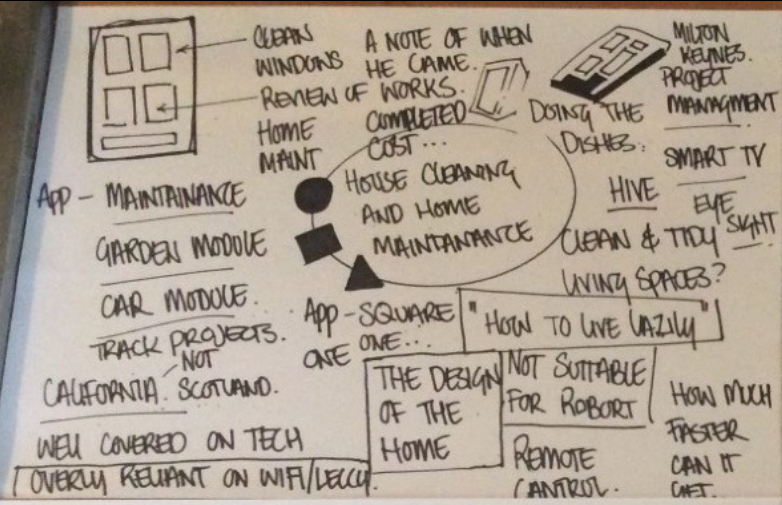 CLEAN
WINDOWS
REVIEW OF WORKS.
HOME
MAINT
A NOTE OF WHEN
HE CAME.
COMPLETED
COST...
MILTON
KEYNES.
PROJECT
MANAGMENT
DOING THE
DISHES.
SMART TV
HIVE
EYE
SIGHT
HOUSE CLEANING
AND HOME
MAINTANANCE
APP - MAINTAINANCE
GARDEN MODULE
CAR MODULE.
TRACK PROJECTS.
NOT
CALIFORNIA. SCOTLAND.
WELL COVERED ON TECH
OVERLY RELIANT ON WIFI/LECCY.
CLEAN & TIDY
LIVING SPACES?
APP - SQUARE
ONE ONE...
"HOW TO LIVE LAZILY"
THE DESIGN
OF THE
HOME
NOT SUITABLE
FOR ROBORT
REMOTE
CANTROL.
HOW MUCH
FASTER
CAN IT
GET.